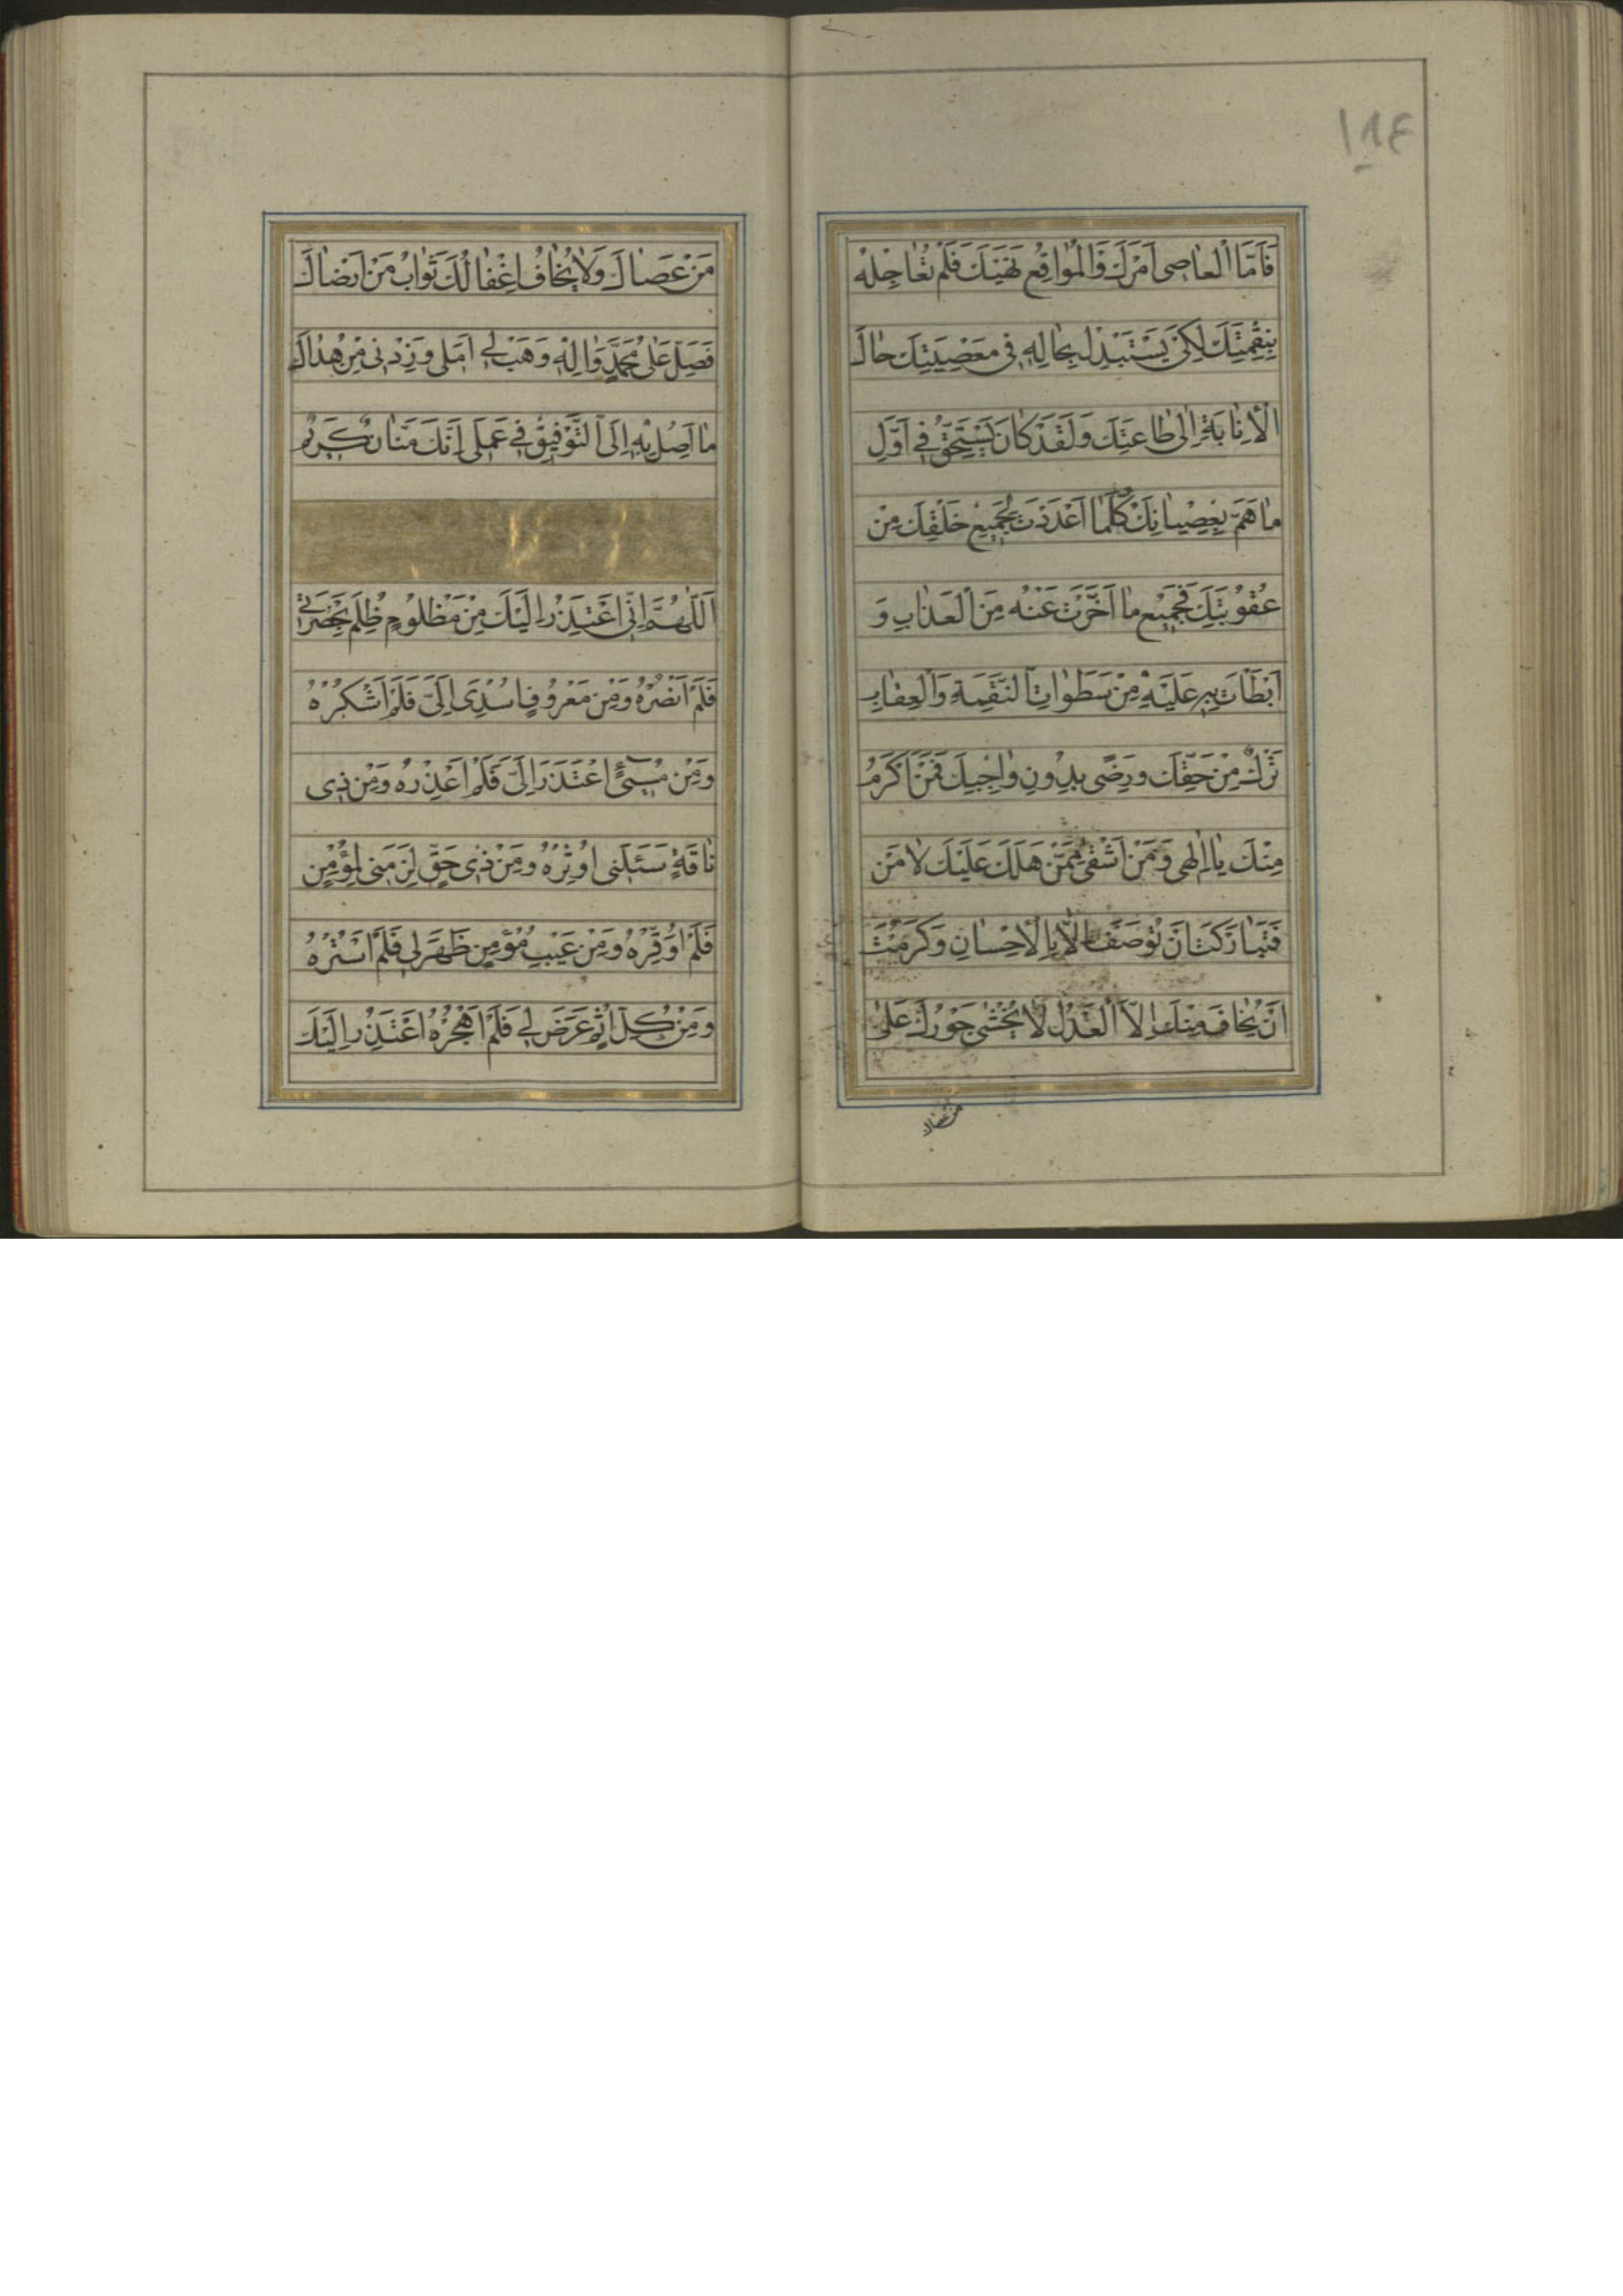 ١٨٤
فَاَمَّا الْعاصى اَمْرَكَ وَالْمُواقِعُ نَهْيَكَ فَلَمْ تُعاجِلْهُ
بِنَقِمَتِكَ لِكَىْ يَسْتَبْدِلَ بِحالِهِ فى مَعْصِيَتِكَ حالَ
الْاِنابَةِ اِلى طاعَتِكَ وَلَقَدْ كانَ يَسْتَحِقُّ فى اَوَّلِ
ما هَمَّ بِعِصْيانِكَ كُلَّما اَعْدَدْتَ لِجَميعِ خَلْقِكَ مِنْ
عُقُوبَتِكَ فَجَميعُ ما اَخَّرْتَ عَنْهُ مِنَ الْعَذابِ وَ
اَبْطَاْتَ بِهِ عَلَيْهِ مِنْ سَطَواتِ النَّقِمَةِ وَالْعِقابِ
تَرْكٌ مِنْ حَقِّكَ وَرِضًى بِدُونِ واجِبِكَ فَمَنْ اَكْرَمُ
مِنْكَ يا اِلهى وَمَنْ اَشْقى مِمَّنْ هَلَكَ عَلَيْكَ لا مَنْ
فَتَبارَكْتَ اَنْ تُوصَفَ اِلّا بِالْاِحْسانِ وَكَرُمْتَ
اَنْ يُخافَ مِنْكَ اِلَّا الْعَدْلُ لا يُخْشى جَوْرُكَ عَلى
من عصاك
مَنْ عَصاكَ وَلا يُخافُ اِغْفالُكَ ثَوابَ مَنْ اَرْضاكَ
فَصَلِّ عَلى مُحَمَّدٍ وَالِهِ وَهَبْ لى اَمَلى وَزِدْنى مِنْ هُداكَ
ما اَصِلُ بِهِ اِلَى التَّوْفيقِ فى عَمَلى اِنَّكَ مَنّانٌ كَريمٌ
اَللّهُمَّ اِنّى اَعْتَذِرُ اِلَيْكَ مِنْ مَظْلُومٍ ظُلِمَ بِحَضْرَتى
فَلَمْ اَنْصُرْهُ وَمِنْ مَعْرُوفٍ اُسْدِىَ اِلَىَّ فَلَمْ اَشْكُرْهُ
وَمِنْ مُسىءٍ اعْتَذَرَ اِلَىَّ فَلَمْ اَعْذِرْهُ وَمِنْ ذى
فاقَةٍ سَئَلَنى فَلَمْ اُوثِرْهُ وَمِنْ ذى حَقٍّ لَزِمَنى لِمُؤْمِنٍ
فَلَمْ اُوَقِّرْهُ وَمِنْ عَيْبِ مُؤْمِنٍ ظَهَرَ لى فَلَمْ اَسْتُرْهُ
وَمِنْ كُلِّ اِثْمٍ عَرَضَ لى فَلَمْ اَهْجُرْهُ اَعْتَذِرُ اِلَيْكَ